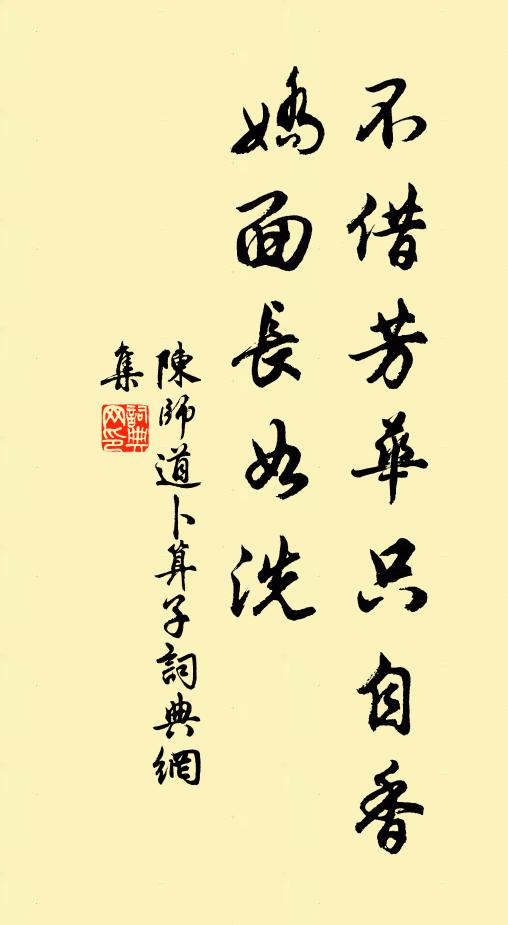 不借芳華只自香
嬌面長如洗
陳師道卜算子詞典網
集
詞典
网印